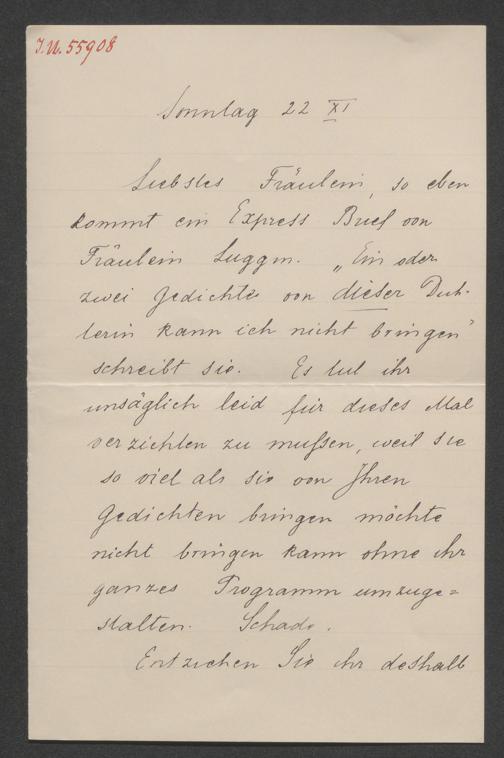 I.N. 55908
Sonntag 22 XI
Liebstes Fräulein, so eben
kommt ein Express Brief von
Fräulein Luggin. „Ein oder
zwei Gedichte von dieser Dich-
terin kann ich nicht bringen"
schreibt sie. Es tut ihr
unsäglich leid für dieses Mal
verzichten zu mußen, weil sie
so viel als sie von Ihren
Gedichten bringen möchte
nicht bringen kann ohne ihr
ganzes Programm umzuge=
stalten. Schade.
Entziehen Sie ihr deshalb